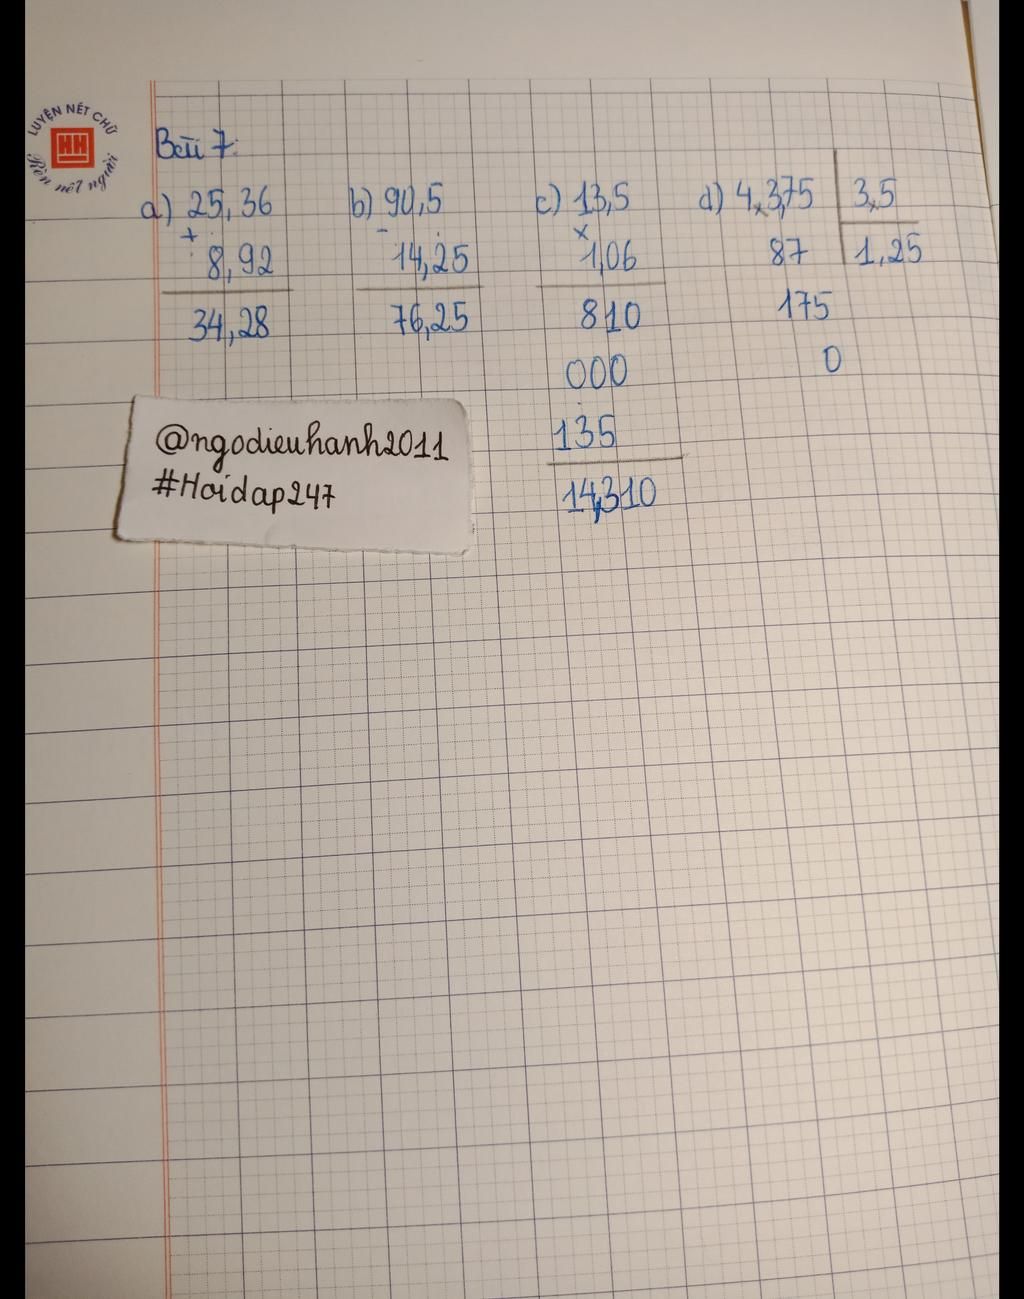 LUYỆN NÉT CHỮ
HH
Rèn nết người
Bài 7:
a) 25,36 b) 90,5 c) 13,5 d) 4,375 3,5
+ - ×
8,92 14,25 1,06 87 1,25
34,28 76,25 810 175
000 0
135
14,310
@ngodieuhanh2011
#Hoidap247